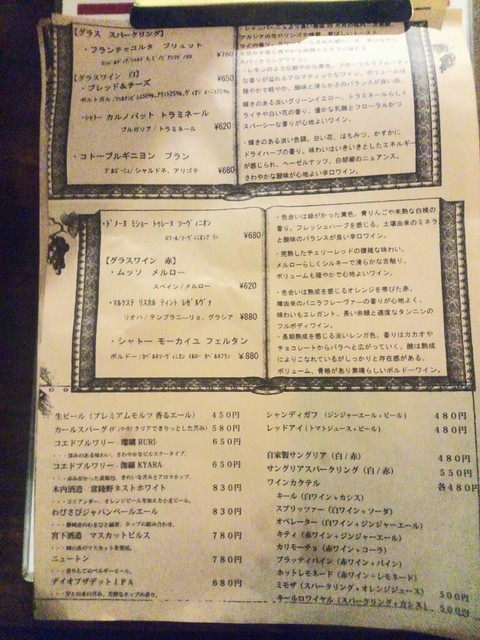 【グラス スパークリング】
・フランチャコルタ ブリュット
¥780
【グラスワイン 白】
¥650
・ブレッド&チーズ
・シャトー カルノバット トラミネール
¥620
ブルガリア/トラミネール
・コトーブルギニヨン ブラン
¥680
ブルゴーニュ/シャルドネ、アリゴテ
スパークリングワイン。
輝きのある淡いグリーンイエロー。トラミネールらしく
ライチや白い花の香り。僅かな乳酸とフローラルかつ
スパーシーな香りが心地よいワイン。
・輝きのある淡い色調、白い花、はちみつ、かすかに
ドライハーブの香り。味わいはいきいきとしたエネルギー
が感じられ、ヘーゼルナッツ、白胡椒のニュアンス。
さわやかな酸味が心地よい辛口ワイン。
・ドメーヌ ミショー トゥレーヌ ソーヴィニオン
¥680
ロワール/ソーヴィニオンブラン
【グラスワイン 赤】
・ムッソ メルロー
¥620
スペイン/メルロー
・マルケステ リスカル ティント レゼルヴァ
リオハ/テンプラニーリョ、グラシア ¥880
・シャトー モーカイユ フェルタン
¥880
・色合いは緑がかった黄色。青りんごや未熟な白桃の
香り。フレッシュハーブを感じる。土壌由来のミネラル
と酸味のバランスが良い辛口ワイン。
・完熟したチェリーレッドの複雑な味わい。
メルローらしくシルキーで滑らかな舌触り。
ボリュームも穏やかで心地よいワイン。
・色合いは熟成を感じるオレンジを帯びた赤。
樽由来のバニラフレーヴァーの香りが心地よく、
味わいもエレガント、長い余韻と適度なタンニンの
フルボディワイン。
・長期熟成を感じる淡いレンガ色。香りはカカオや
チョコレートからバラへと広がっていく。酸は熟成
によりこなれているがしっかりと存在感がある。
ボリューム、骨格があり素晴らしいボルドーワイン。
生ビール(プレミアムモルツ 香るエール) 450円
カールスバーグ(デンマーク/クリアできりっとした苦み) 580円
コエドブルワリー -瑠璃 RURI- 650円
・・・深みのある味わい、さわやかなピルスナータイプ。
コエドブルワリー -伽羅 KYARA- 650円
木内酒造 常陸野ネストホワイト 830円
・・・コリアンダー、オレンジピールを加えた小麦ビール。
わびさびジャパンペールエール 830円
・・・静岡産のわさびと緑茶、ホップの組み合わせ。
宮下酒造 マスカットピルス 780円
ニュートン 780円
・・・青りんごのベルギービール。
デイオブザデット IPA 680円
シャンディガフ (ジンジャーエール+ビール) 480円
レッドアイ (トマトジュース+ビール) 480円
自家製サングリア (白/赤) 480円
サングリアスパークリング (白/赤) 550円
ワインカクテル 各480円
キール (白ワイン+カシス)
スプリッツァー (白ワイン+ソーダ)
オペレーター (白ワイン+ジンジャーエール)
キティ (赤ワイン+ジンジャーエール)
カリモーチョ (赤ワイン+コーラ)
ブラッディパイン (赤ワイン+パイン)
ホットレモネード (赤ワイン+レモネード)
ミモザ (スパークリング+オレンジジュース) 500円
キールロワイヤル (スパークリング+カシス) 500円